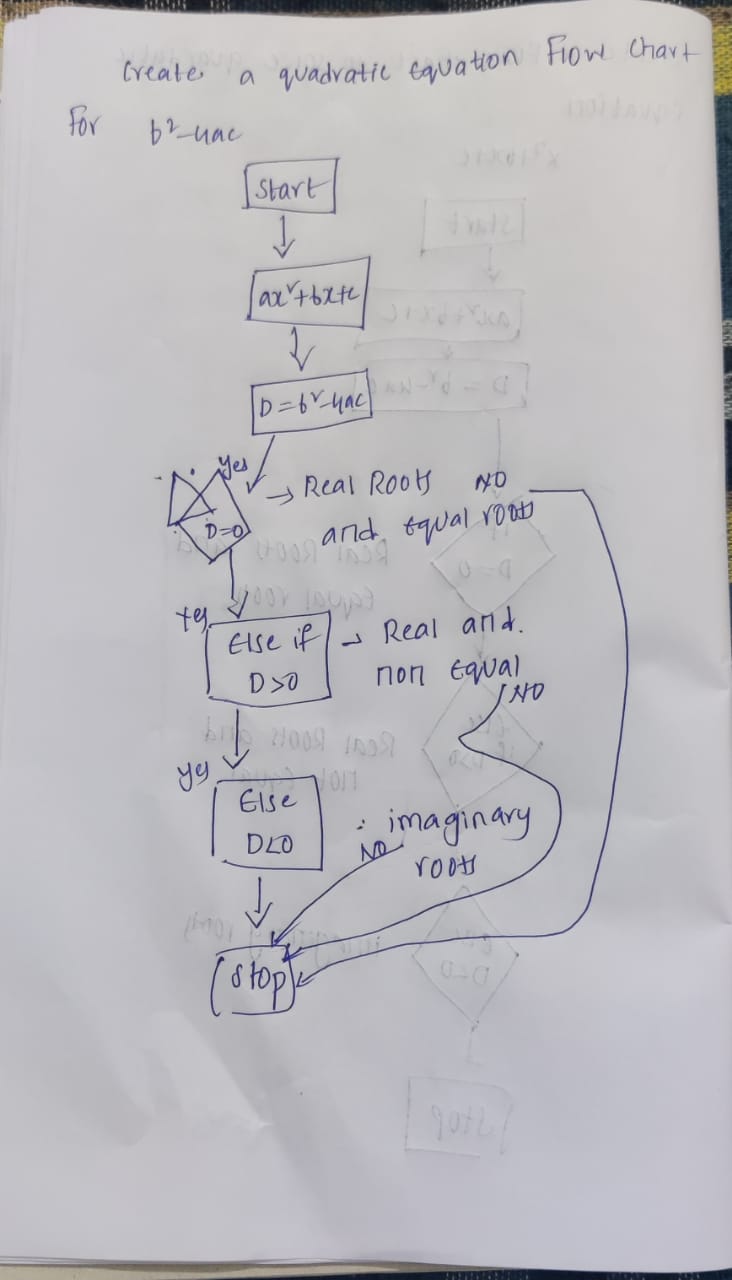 Create a quadratic Equation Flow Chart
For b²-4ac
Start
ax²+bx+c
D=b²-4ac
yes
D=0
→ Real Roots NO
and equal roots
yes
Else if → Real and
D>0 non Equal
NO
yes
Else : imaginary
D<0 NO roots
Stop